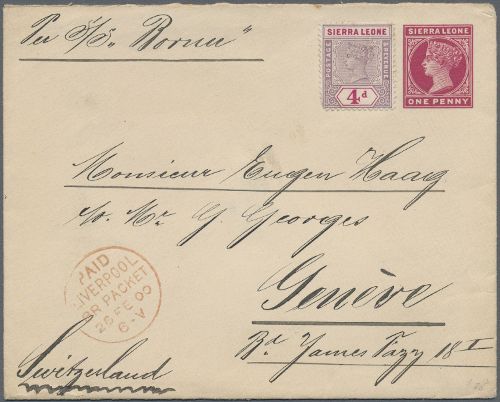 Per S/S. "Bornu"
SIERRA LEONE
POSTAGE
REVENUE
4d
SIERRA LEONE
ONE PENNY
Monsieur Eugen Haag
c/o. Mr. G. Georges
Genève
Bd. James Fazy 18 I
PAID
LIVERPOOL
BR PACKET
26 FE 00
Switzerland